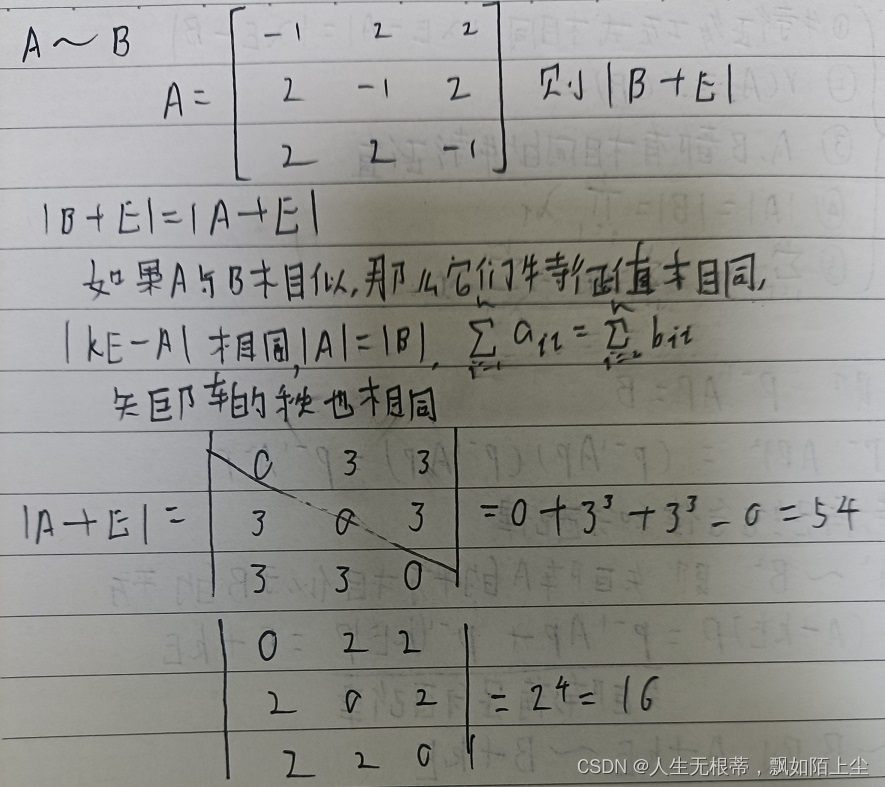 A ~ B
A = [ -1 2 2
2 -1 2
2 2 -1 ] 则 |B+E|
|B+E|=|A+E|
如果A与B相似,那么它们特征值相同,
|kE-A| 相同,|A|=|B|, ∑ aᵢᵢ = ∑ bᵢᵢ
矩阵的秩也相同
|A+E| = | 0 3 3
3 0 3
3 3 0 | = 0 + 3³ + 3³ - 0 = 54
| 0 2 2
2 0 2
2 2 0 | = 2⁴ = 16
CSDN @人生无根蒂,飘如陌上尘